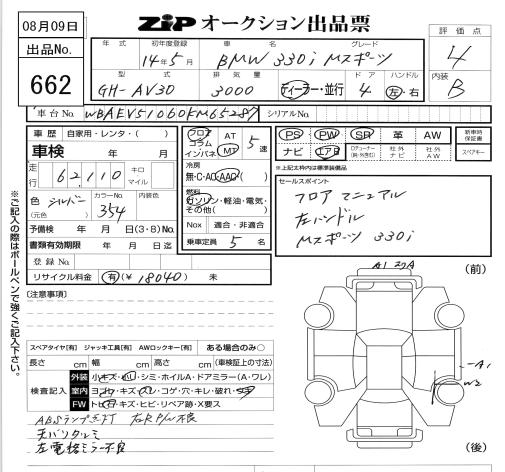 08月09日
ZIP オークション出品票
出品No.
662
年 式 初年度登録 車 名 グレード
14年5月 BMW 330i Mスポーツ
型 式 排 気 量 ドア ハンドル
GH-AV30 3000 ディーラー・並行 4 左・右
評価点
4
内装
B
車台No. WBAEV51060KM65287 シリアルNo.
車歴 自家用・レンタ・( )
車検 年 月
走行 62,110 キロ マイル
色 シルバー カラーNo. 354 内装色
(元色)
予備検 年 月 日(3・8)の月
書類有効期限 年 月 日迄
登録No
リサイクル料金 有(¥ 18040) 未
フロア コラム インパネ AT MT 5速
冷房
無・C・AC・AAC
燃料
ガソリン・軽油・電気・その他( )
Nox 適合・非適合
乗車定員 5 名
PS PW SR 革 AW
ナビ エアB Dチューナー 社外ナビ 社外AW
新車時保証書
スペアキー
※上記太枠内は標準装備品
セールスポイント
フロア マニュアル
左ハンドル
Mスポーツ 330i
※ご記入の際はボールペンで強くご記入下さい。
(注意事項)
A1 スリA (前)
A1
W2
(後)
スペアタイヤ[有] ジャッキ工具[有] AWロックキー[有] ある場合のみ○
長さ cm 幅 cm 高さ cm (車検証上の寸法)
検査記入
外装 小キズ・凹・シミ・ホイルA・ドアミラー(A・ワレ)
室内 ヨゴレ・キズ・スレ・コゲ・穴・キレ・破れ
FW トビ石・キズ・ヒビ・リペア跡・X要ス
ABSランプ点灯 右R P/W不良
天バリタルミ
左電格ミラー不良